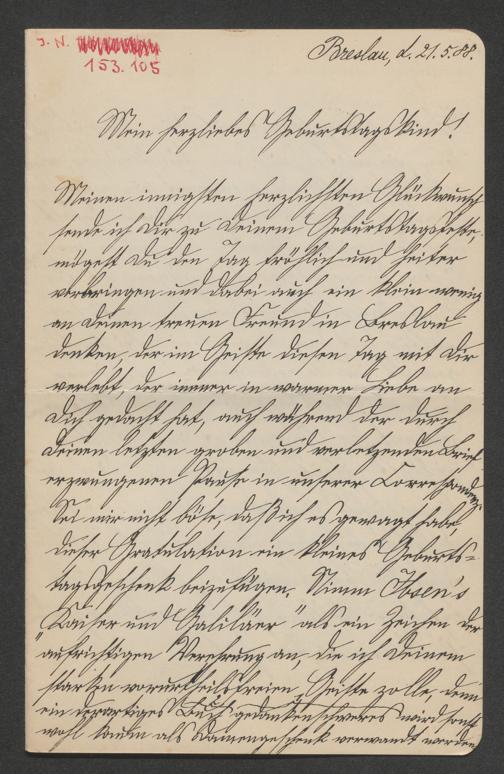 J. N.
153.105
Breslau, d. 21.5.88.
Mein herzliebes Geburtstagskind!
Meinen innigsten herzlichsten Glückwunsch
sende ich Dir zu Deinem Geburtstagsfeste,
mögest Du den Tag fröhlich und heiter
verbringen und dabei auch ein klein wenig
an Deinen treuen Freund in Breslau
denken, der im Geiste diesen Tag mit Dir
verlebt, der immer in warmer Liebe an
Dich gedacht hat, auch während der durch
Deinen letzten groben und verletzenden Brief
erzwungenen Pause in unserer Correspondenz.
Sei mir nicht böse, daß ich es gewagt habe,
dieser Gratulation ein kleines Geburts-
tagsgeschenk beizufügen. Nimm Ibsen's
„Kaiser und Galiläer" als ein Zeichen der
aufrichtigen Verehrung an, die ich Deinem
starken vorurtheilsfreien Geiste zolle, denn
ein derartiges Buch gedankenschweres wird sonst
wohl kaum als Damengeschenk verwandt werden